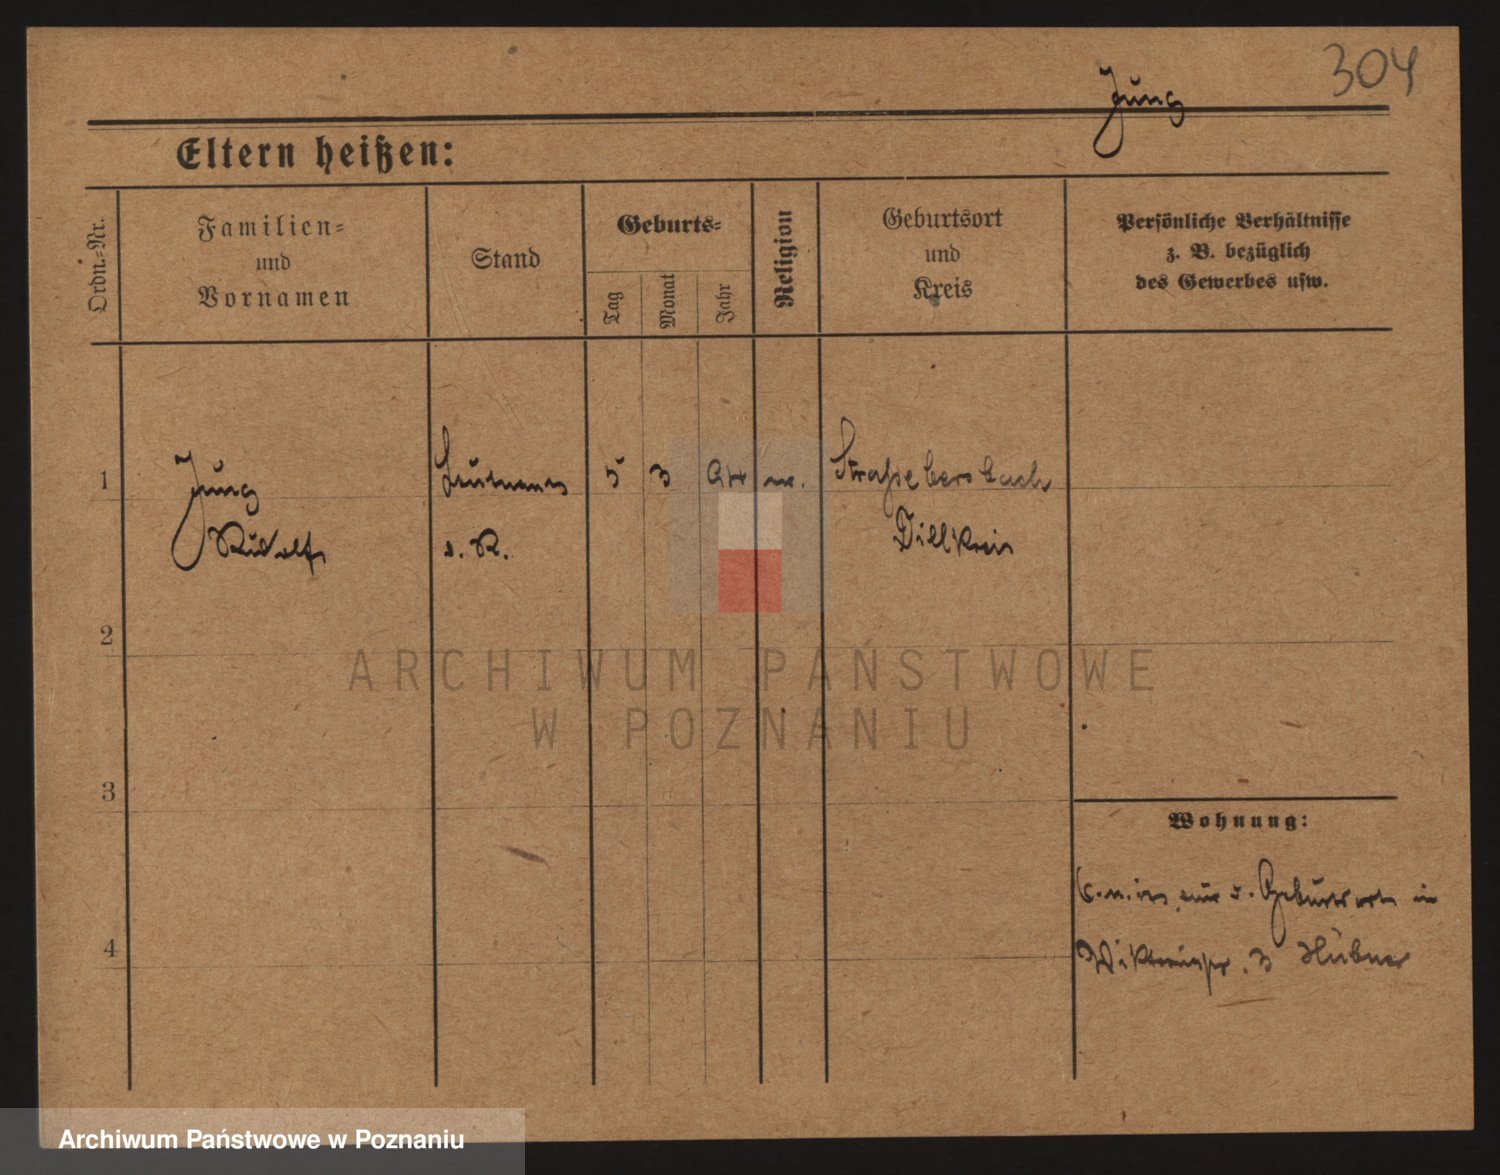 304
Jung
Eltern heißen:
Ordn.-Nr.
Familien-
und
Vornamen
Stand
Geburts-
Tag
Monat
Jahr
Religion
Geburtsort
und
Kreis
Persönliche Verhältnisse
z. B. bezüglich
des Gewerbes usw.
1
Jung
Rudolf
Leutnant
d. R.
5
3
Straßebersbach
Dillkreis
2
3
4
Wohnung:
Geburtsort in
Viktoriastr. 3 Hübner
ARCHIWUM PAŃSTWOWE
W POZNANIU
Archiwum Państwowe w Poznaniu